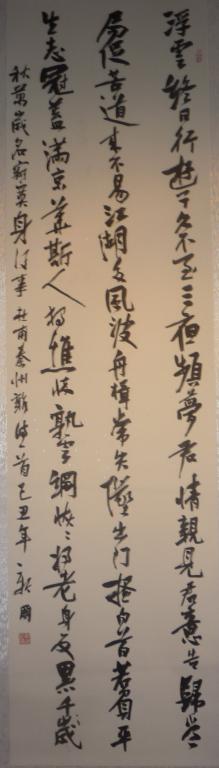 浮雲終日行遊子久不至三夜頻夢君情親見君意告歸常
局促苦道來不易江湖多風波舟楫常失墜出門搔白首若負平
生志冠蓋滿京華斯人獨憔悴孰雲網恢恢將老身反累千
秋萬歲名寂寞身後事杜甫秦州首己丑年